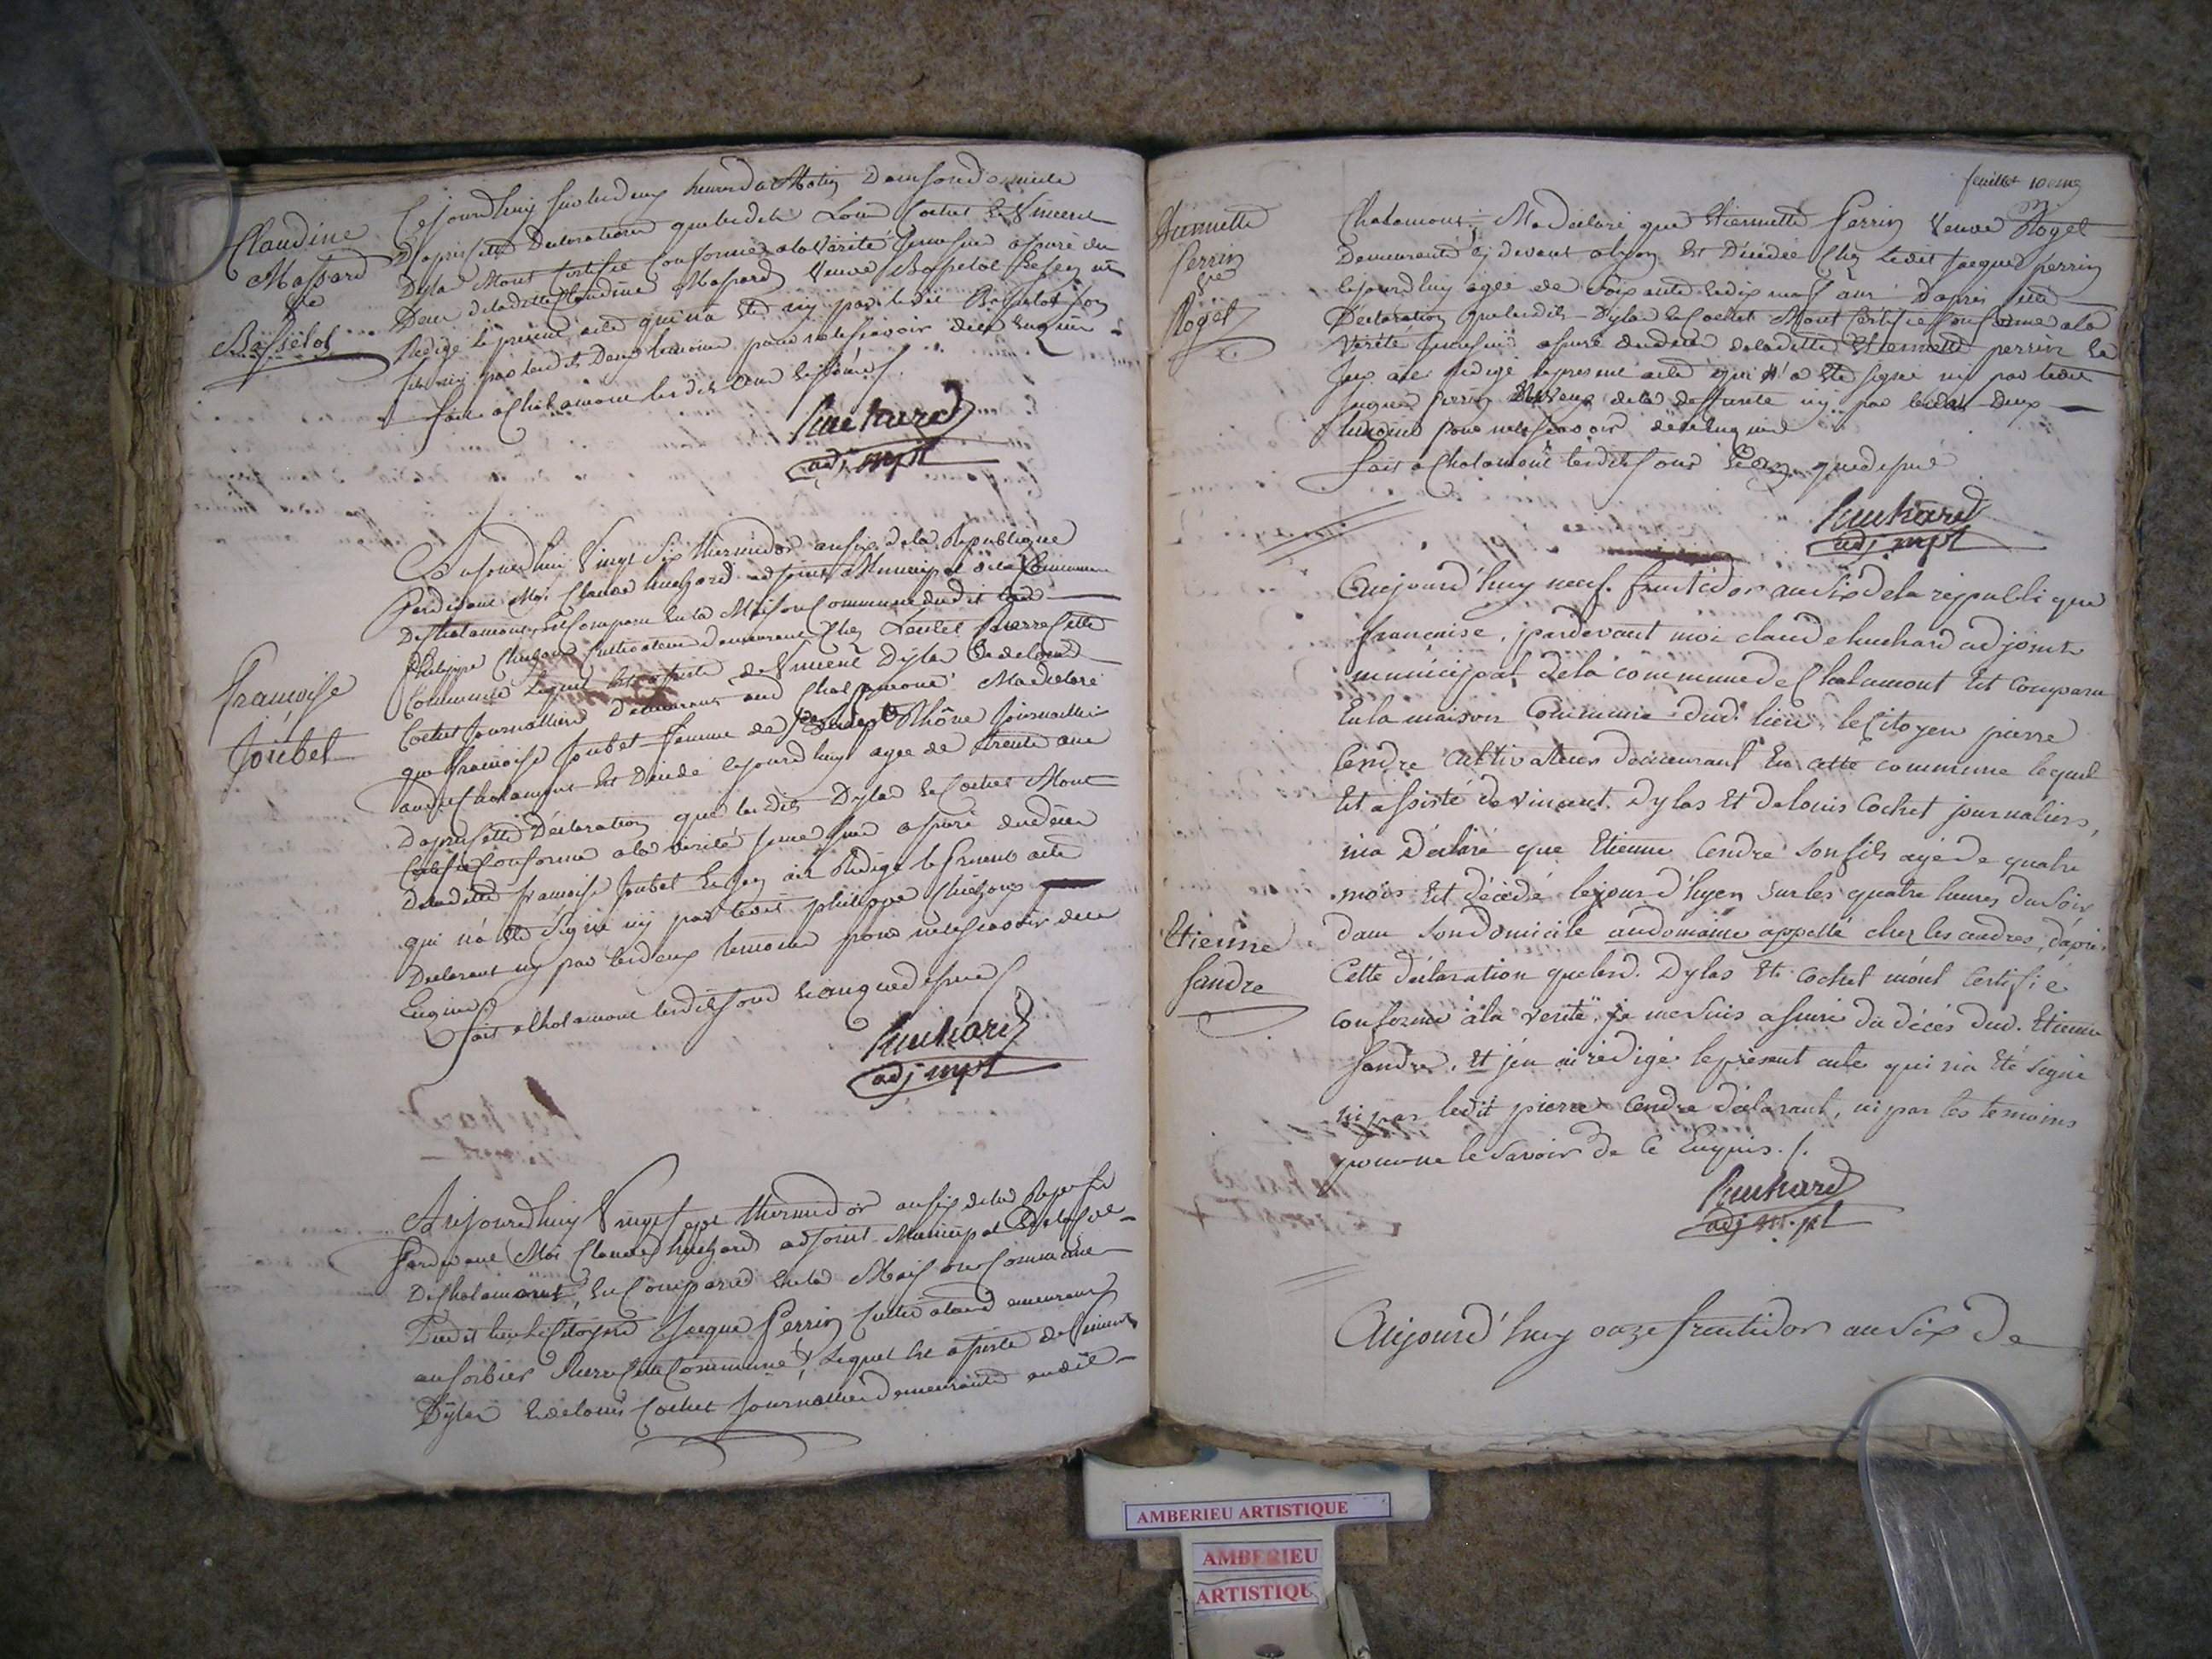 Claudine
Massard
Ve
Basselot
Cejourdhuy sur les deux heures du Matin dans son domicile
D'après cette Declaration que lesdits Louis Cochet & Vincent
Dylas M'ont Certifié Conforme a la Vérité je me suis assuré du
Deces de ladite Claudine Massard Veuve Basselot & j'en ai
Redigé le présent acte qui n'a été ny par ledit Basselot son
fils ny par lesdits Deux temoins pour ne le scavoir de ce Enquis
fait a Chalamont lesdits jour
huchard
adj. mpl
Francoise
Joubet
Aujourdhuy Vingt Six thermidor an six de la Republique
Pardevant Moi Claude huchard adjoint Municipal de la Commune
De Chalamont, Est Comparu En la Maison Commune dudit lieu
Philippe cultivateur demeurant Chez
Commune Lequel Est assisté de Vincent Dylas & de Louis
Cochet Journalliers demeurant aud Chalamont M'a declaré
que Francoise Joubet femme de Rhône Journallier
audit Chalamont Est Décédé cejourdhuy agée de trente ans
D'après cette Déclaration que lesdits Dylas & Cochet M'ont
Certifié Conforme a la Verité je me suis assuré du décès
De ladite francoise Joubet & j'en ai Redigé le present acte
qui n'a Eté Signé ny par ledit philippe
Declarant ny par les deux temoins pour ne le scavoir de ce
Enquis
fait a Chalamont lesdits jour & an que dessus
huchard
adj mpl
Aujourdhuy Vingt sept thermidor an six de la Rep
Pardevant Moi Claude huchard adjoint Municipal de la
De Chalamont, Est Comparu En la Maison Commune
Dudit lieu le Citoyen Jacque Perrin Cultivateur demeurant
au Sorbier cette Commune, Lequel Est assisté de Vincent
Dylas & de Louis Cochet Journalliers demeurants audit
feuillet 10eme
Etiennette
Perrin
Ve
Rogel
Chalamont, M'a declaré que Etiennette Perrin Veuve Rogel
Demeurante cy devant a lyon Est Décédée Chez Ledit Jacque perrin
cejourdhuy agée de Soixante & dix neuf ans D'après cette
Déclaration que lesdits Dylas & Cochet M'ont Certifié Conforme a la
Verité je me suis assuré du décès de ladite Etiennette perrin &
j'en ai redigé le present acte qui n'a Eté signé ny par ledit
Jacque Perrin Neveux de la deffunte ny par lesdits Deux
temoins pour ne le scavoir de ce Enquis
fait a Chalamont lesdits jour & an que dessus
huchard
adj. mpl
Etienne
Sandre
Aujourd'huy neuf fructidor an Six de la république
française, pardevant moi claude huchard adjoint
municipal de la commune de Chalamont Est Comparu
En la maison Commune dud. lieu, le Citoyen pierre
Cendre Cultivateur demeurant En cette commune lequel
Est assisté de vincent Dylas Et de louis Cochet journaliers,
m'a déclaré que Etienne Cendre son fils agé de quatre
mois Est décédé le jour d'hyer sur les quatre heures du Soir
dans son domicile au domaine appellé chez les cendres, d'après
Cette déclaration que lesd. Dylas Et cochet m'ont Certifié
conforme à la verité, je me suis assuré du décés dud. Etienne
Sandre, Et j'en ai rédigé le présent acte qui n'a Eté Signé
ni par ledit pierre Cendre déclarant, ni par les temoins
pour ne le Savoir de Ce Enquis./.
huchard
adj m.pl
Aujourd'huy onze fructidor an Six de
AMBERIEU ARTISTIQUE
AMBERIEU
ARTISTIQU